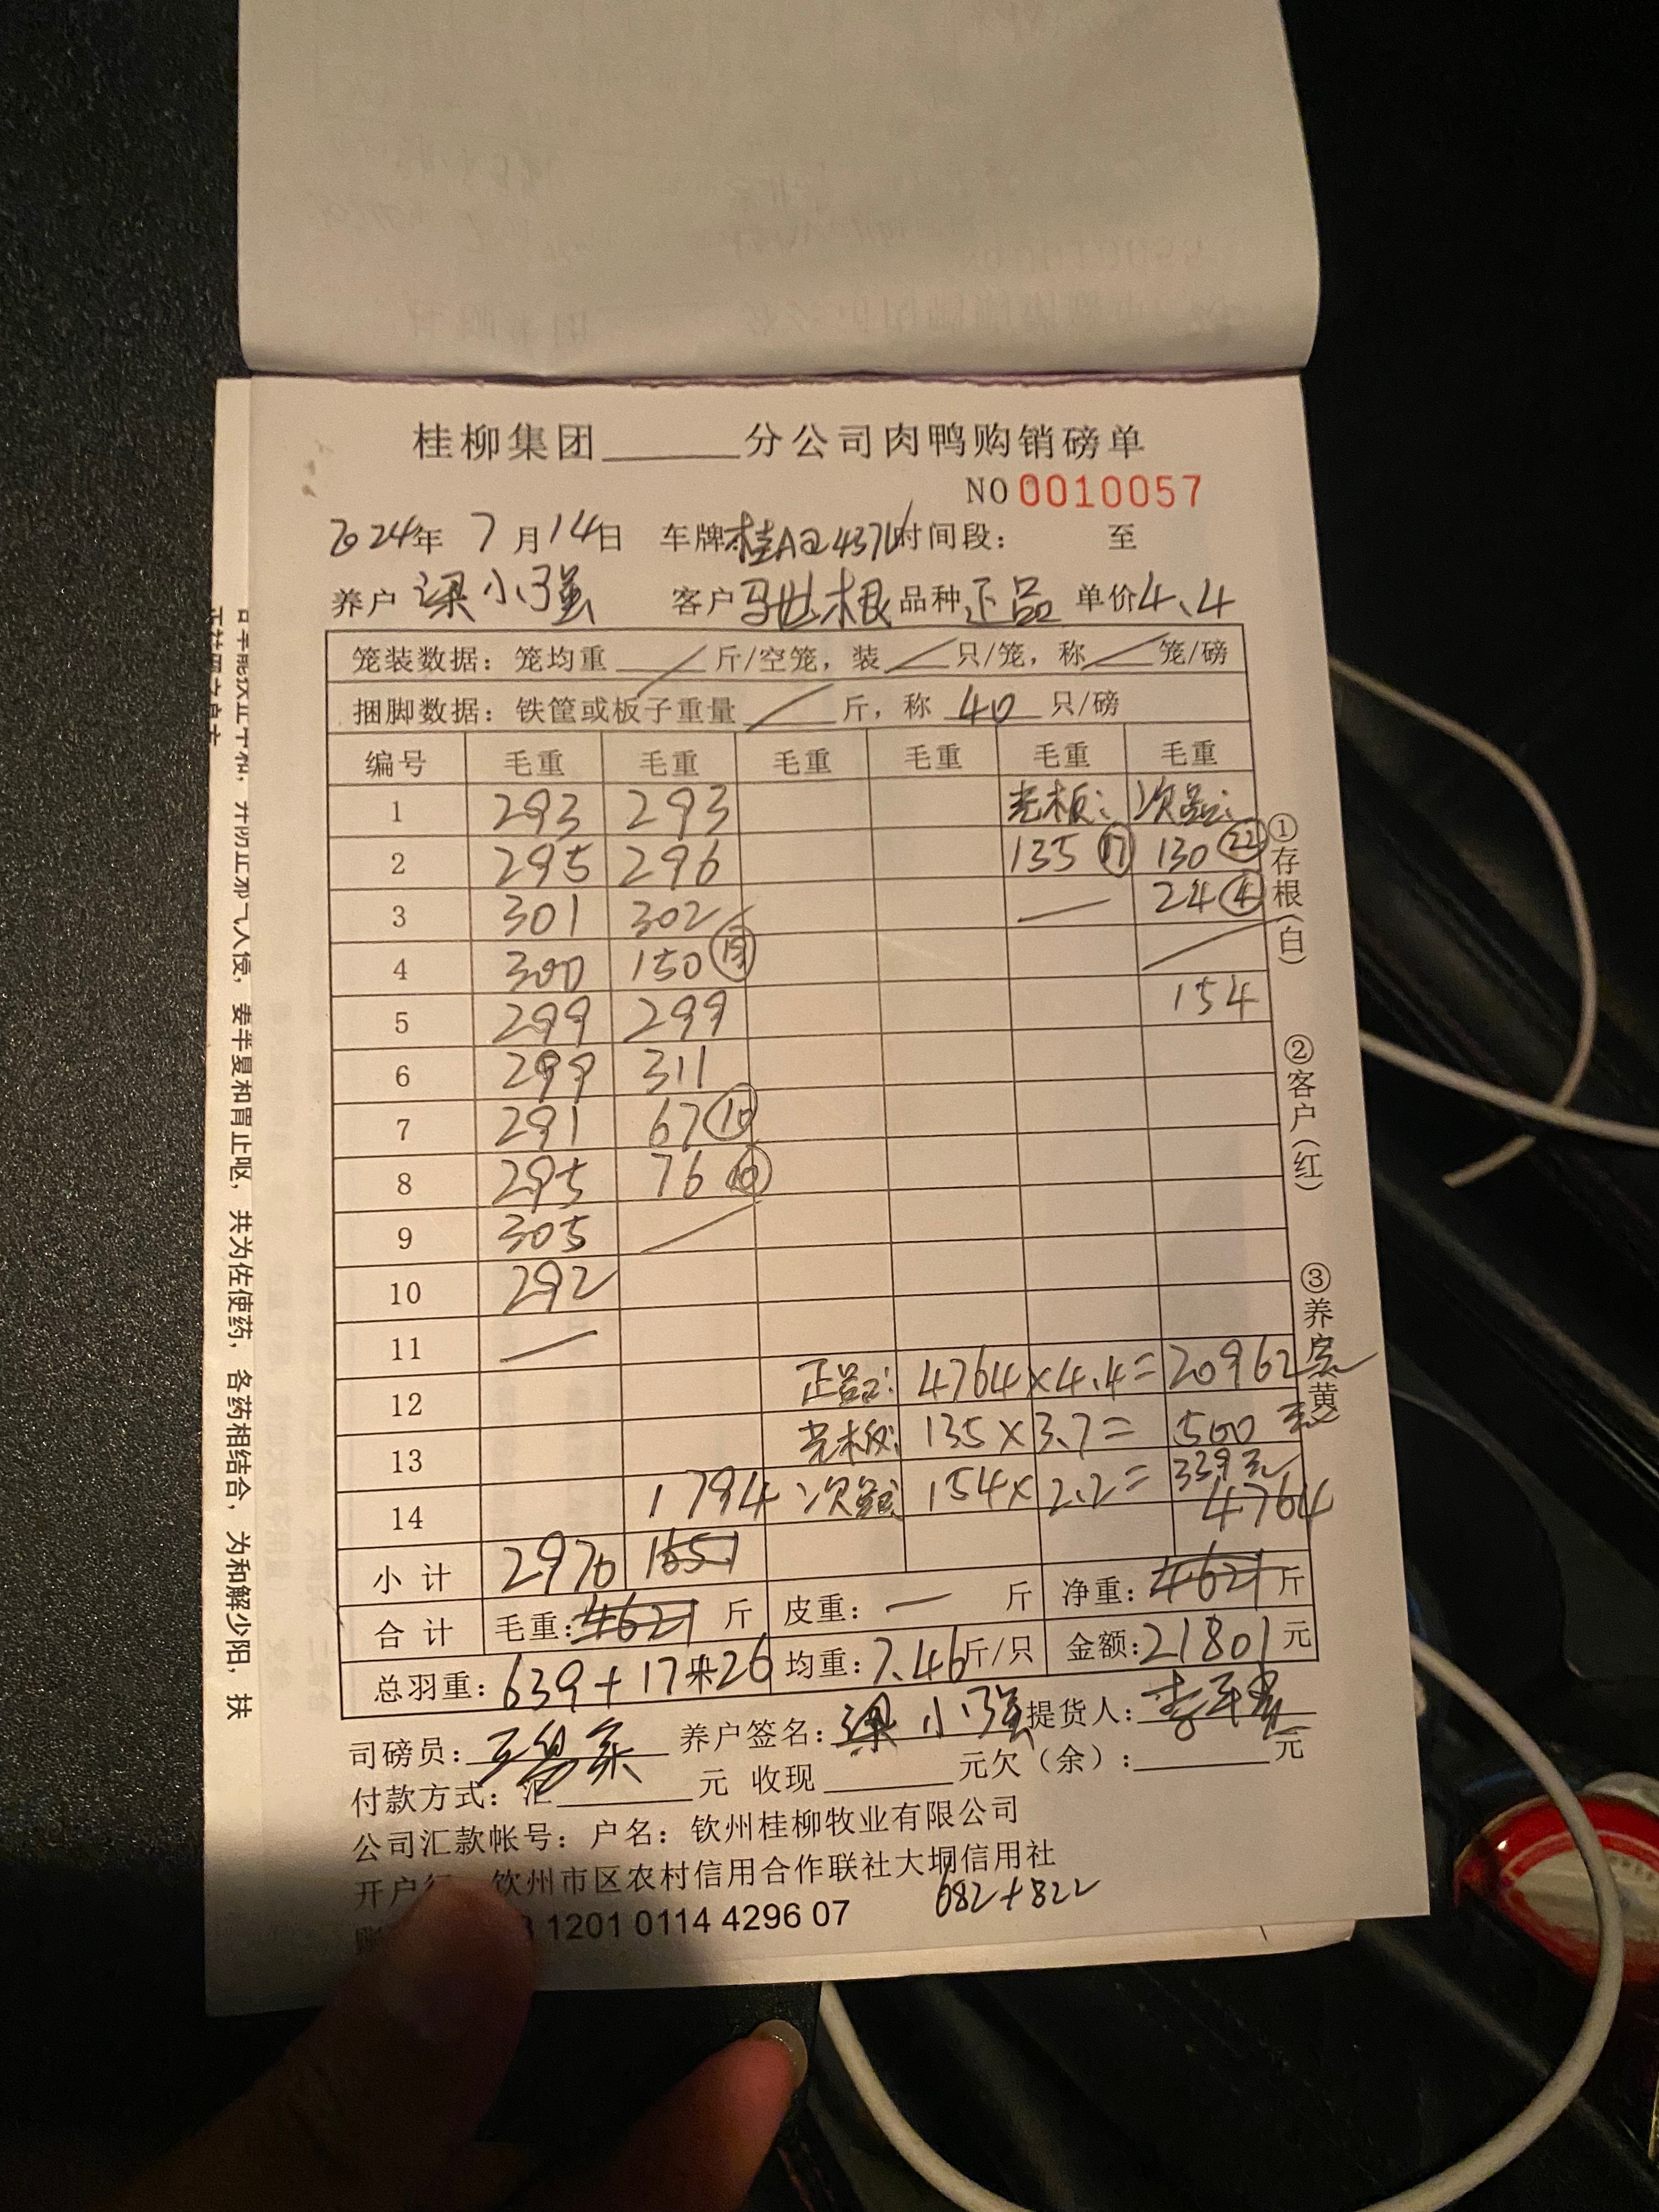 桂柳集团______分公司肉鸭购销磅单
NO 0010057
2024年 7月14日 车牌:桂A 时间段: 至
养户 梁小强 客户 马世根 品种 正品 单价4.4
笼装数据:笼均重 / 斤/空笼,装 / 只/笼,称 / 笼/磅
捆脚数据:铁筐或板子重量 / 斤,称 40 只/磅
编号 毛重 毛重 毛重 毛重 毛重 毛重
1 293 293 光板: 次品:
2 295 296 135 ⑰ 130 ㉒
3 301 302 — 24 ④
4 300 150 /
5 299 299 154
6 299 311
7 291 67 ⑩
8 295 76 ⑩
9 305 /
10 292
11 —
12 正品: 4764×4.4= 20962元
13 光板: 135×3.7= 500元
14 1794 次品: 154×2.2= 339元
4764
小计 2970 1651
合计 毛重:4621 斤 皮重: — 斤 净重:4621 斤
总羽重:639+17+26 均重:7.46斤/只 金额:21801元
司磅员: 养户签名:梁小强 提货人:
付款方式:汇______元 收现______元欠(余):______元
公司汇款帐号:户名:钦州桂柳牧业有限公司
开户 钦州市区农村信用合作联社大垌信用社
1201 0114 4296 07
682+822
①存根(白)
②客户(红)
③养户(黄)
人侵,姜半夏和胃止呕,共为佐使药,各药相结合,为和解少阳,扶